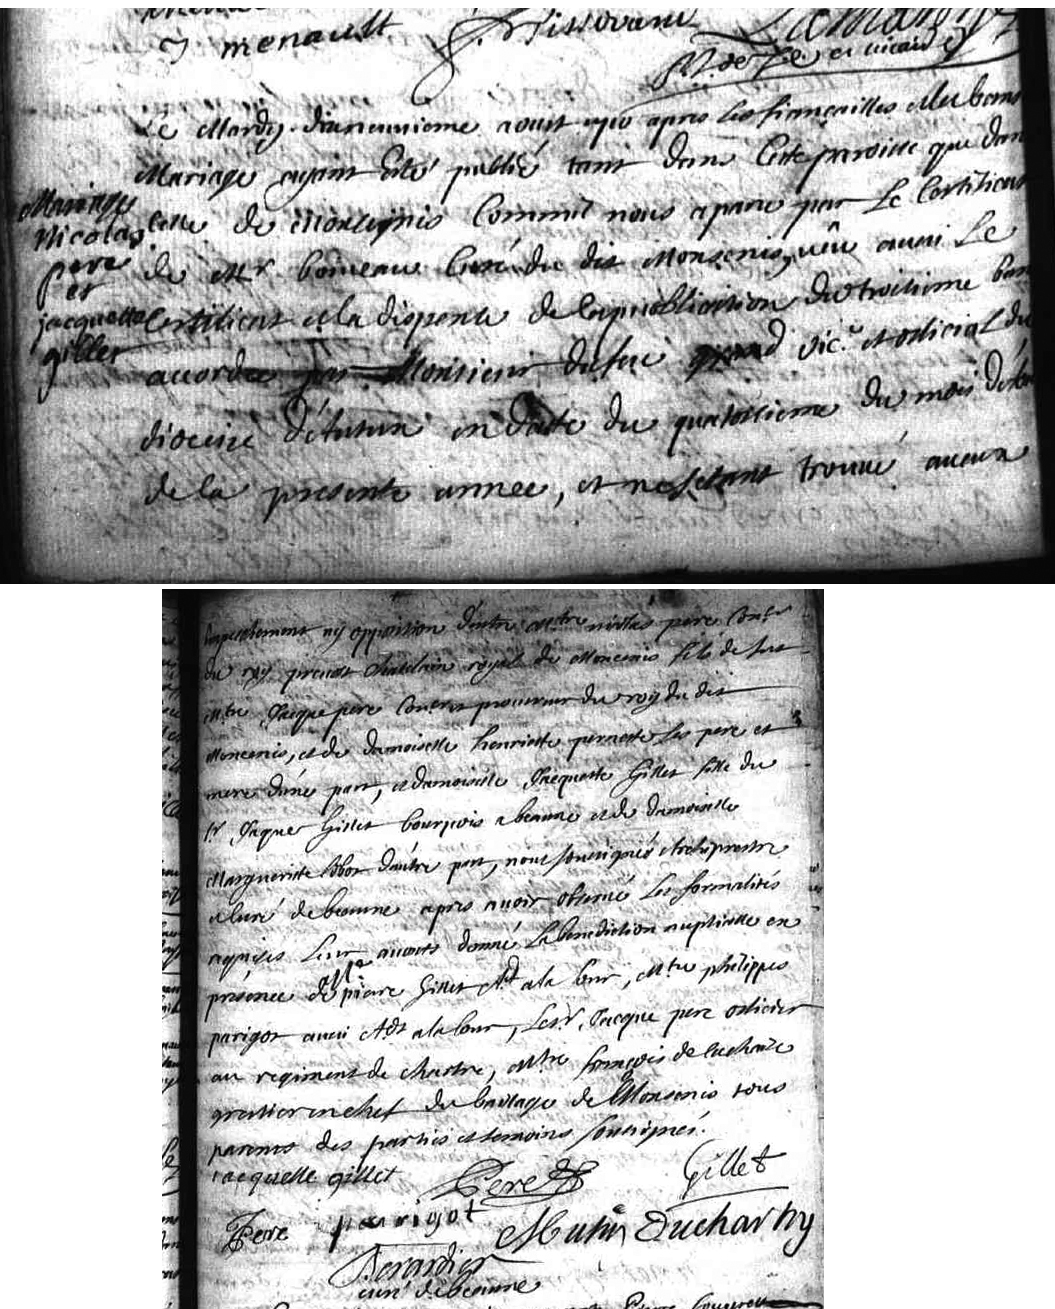 menault
Le Mardy dixneuvieme aoust 1710 apres les fiancailles et les bans
Mariage ayant Eté publié tant dans Cette paroisse que dans
Mariage
Nicolas
pere
et
jacquette
gillet
celle de Monsenis Comme il nous a paru par Le Certificat
de Mr boiveau Curé du dit Monsenis, vëu aussi Le
Certificat et la dispense de la publication du troisieme ban
accordée par Monsieur grand vic.e et official du
diocese d'Autun en datte du quatorzieme du mois
de la presente année, et ne s'etant trouvé aucun
Empechement ny opposition d'entre Mtre nicolas pere Conser
du roy prevost Chatelain royal de Moncenis fils de feu
Mtre Jacque pere Conser et procureur du roy du dit
Moncenis, et de damoiselle henriette pernette Les pere et
mere d'une part, et damoiselle Jacquette Gillet fille du
Sr Jaque Gillet bourgois a beaune et de damoiselle
Marguerite d'autre part, nous soussigné Archiprestre
et curé de beaune apres avoir observé Les formalités
requises Leur avons donné La benediction nuptialle en
présence de Me pierre Gillet Adt a la Cour, Mtre philippes
parigot aussi Adt a la Cour, Le Sr Jacque pere officier
au regiment de Chartre, Mtre françois de la chaize
greffier en chef du bailliage de Monsenis tous
parents des parties et temoins soussignés.
jacquette gillet
Pere
Gillet
Pere
parigot
Ducharny
Berardier
curé de beaune